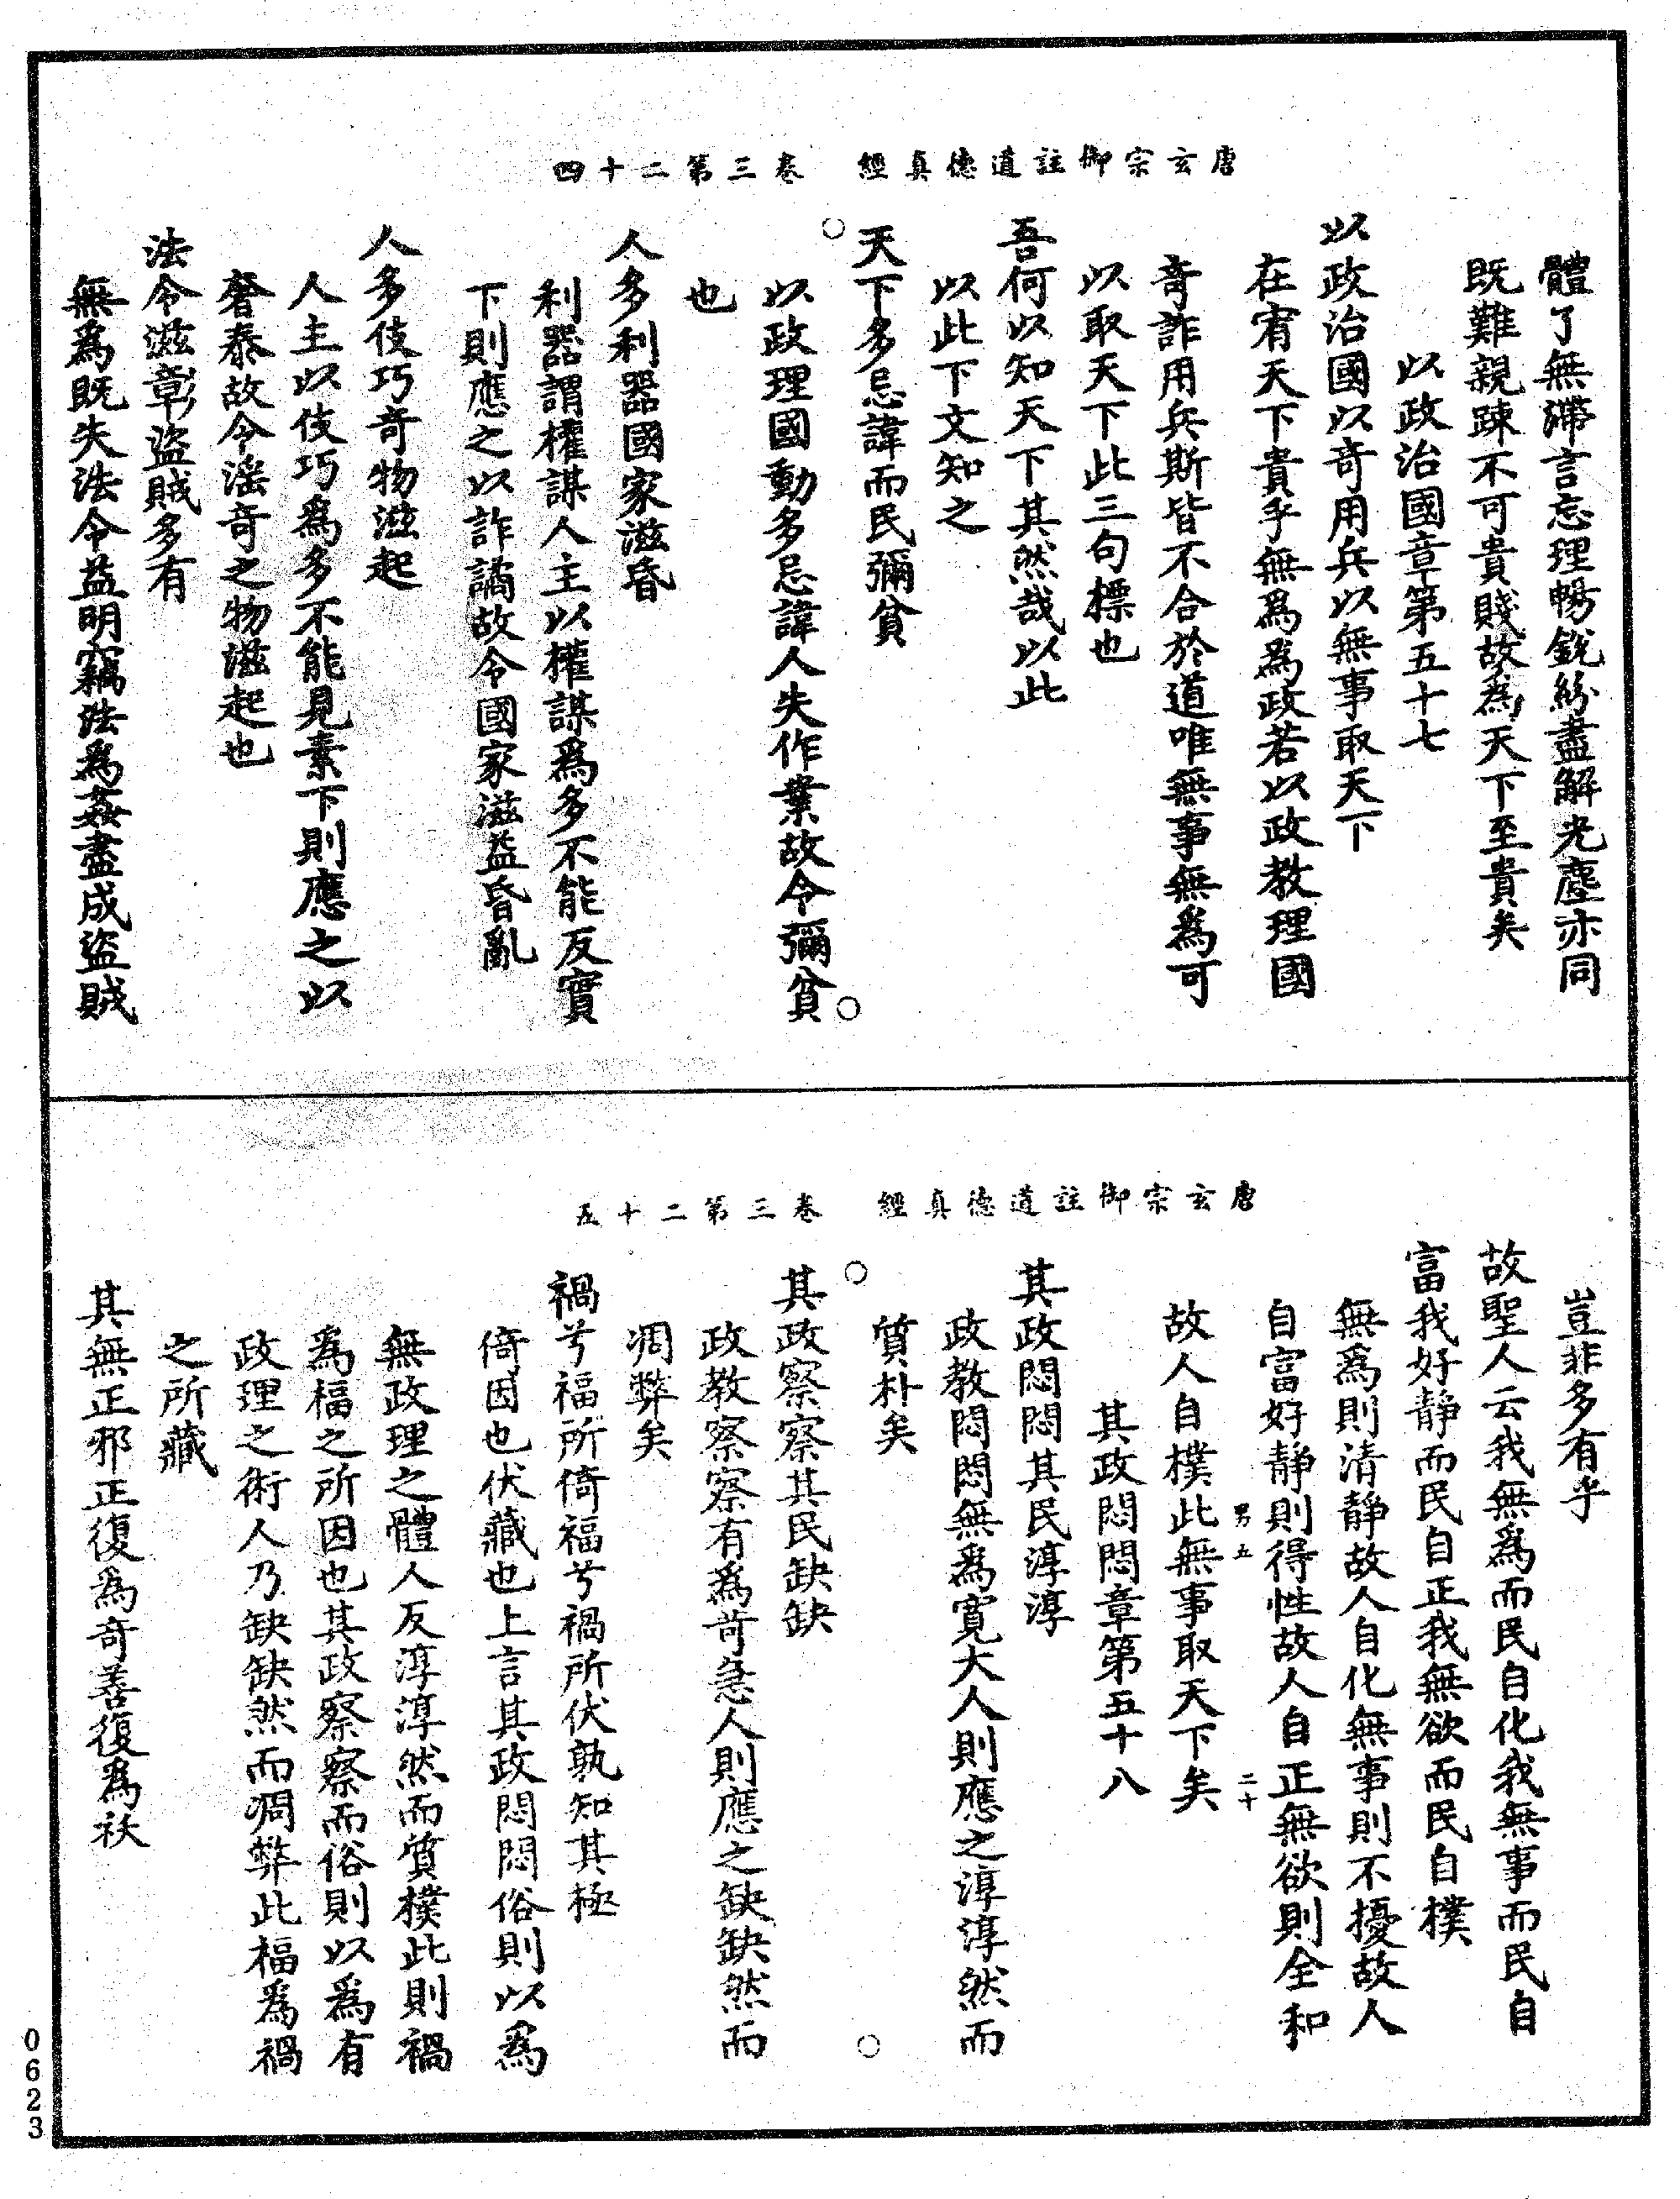 唐玄宗御註道德真經　卷三第二十四
體了無滯言忘理暢銳紛盡解光塵亦同
既難親踈不可貴賤故為天下至貴矣
以政治國章第五十七
以政治國以奇用兵以無事取天下
在宥天下貴乎無爲爲政若以政教理國
奇詐用兵斯皆不合於道唯無事無爲可
以取天下此三句標也
吾何以知天下其然哉以此
以此下文知之
天下多忌諱而民彌貧
以政理國動多忌諱人失作業故令彌貧
也
人多利器國家滋昏
利器謂權謀人主以權謀爲多不能反實
下則應之以詐譎故令國家滋益昏亂
人多伎巧奇物滋起
人主以伎巧爲多不能見素下則應之以
奢泰故令滛奇之物滋起也
法令滋彰盜賊多有
無爲既失法令益明竊法爲姦盡成盜賊
唐玄宗御註道德真經　卷三第二十五
豈非多有乎
故聖人云我無爲而民自化我無事而民自
富我好静而民自正我無欲而民自樸
無爲則清静故人自化無事則不擾故人
自富好静則得性故人自正無欲則全和
男五　二十
故人自樸此無事取天下矣
其政悶悶章第五十八
其政悶悶其民淳淳
政教悶悶無爲寛大人則應之淳淳然而
質朴矣
其政察察其民缺缺
政教察察有爲苛急人則應之缺缺然而
凋弊矣
禍兮福所倚福兮禍所伏孰知其極
倚因也伏藏也上言其政悶悶俗則以爲
無政理之體人反淳淳然而質樸此則禍
爲福之所因也其政察察而俗則以爲有
政理之術人乃缺缺然而凋弊此福爲禍
之所藏
其無正邪正復爲奇善復爲祅
0623